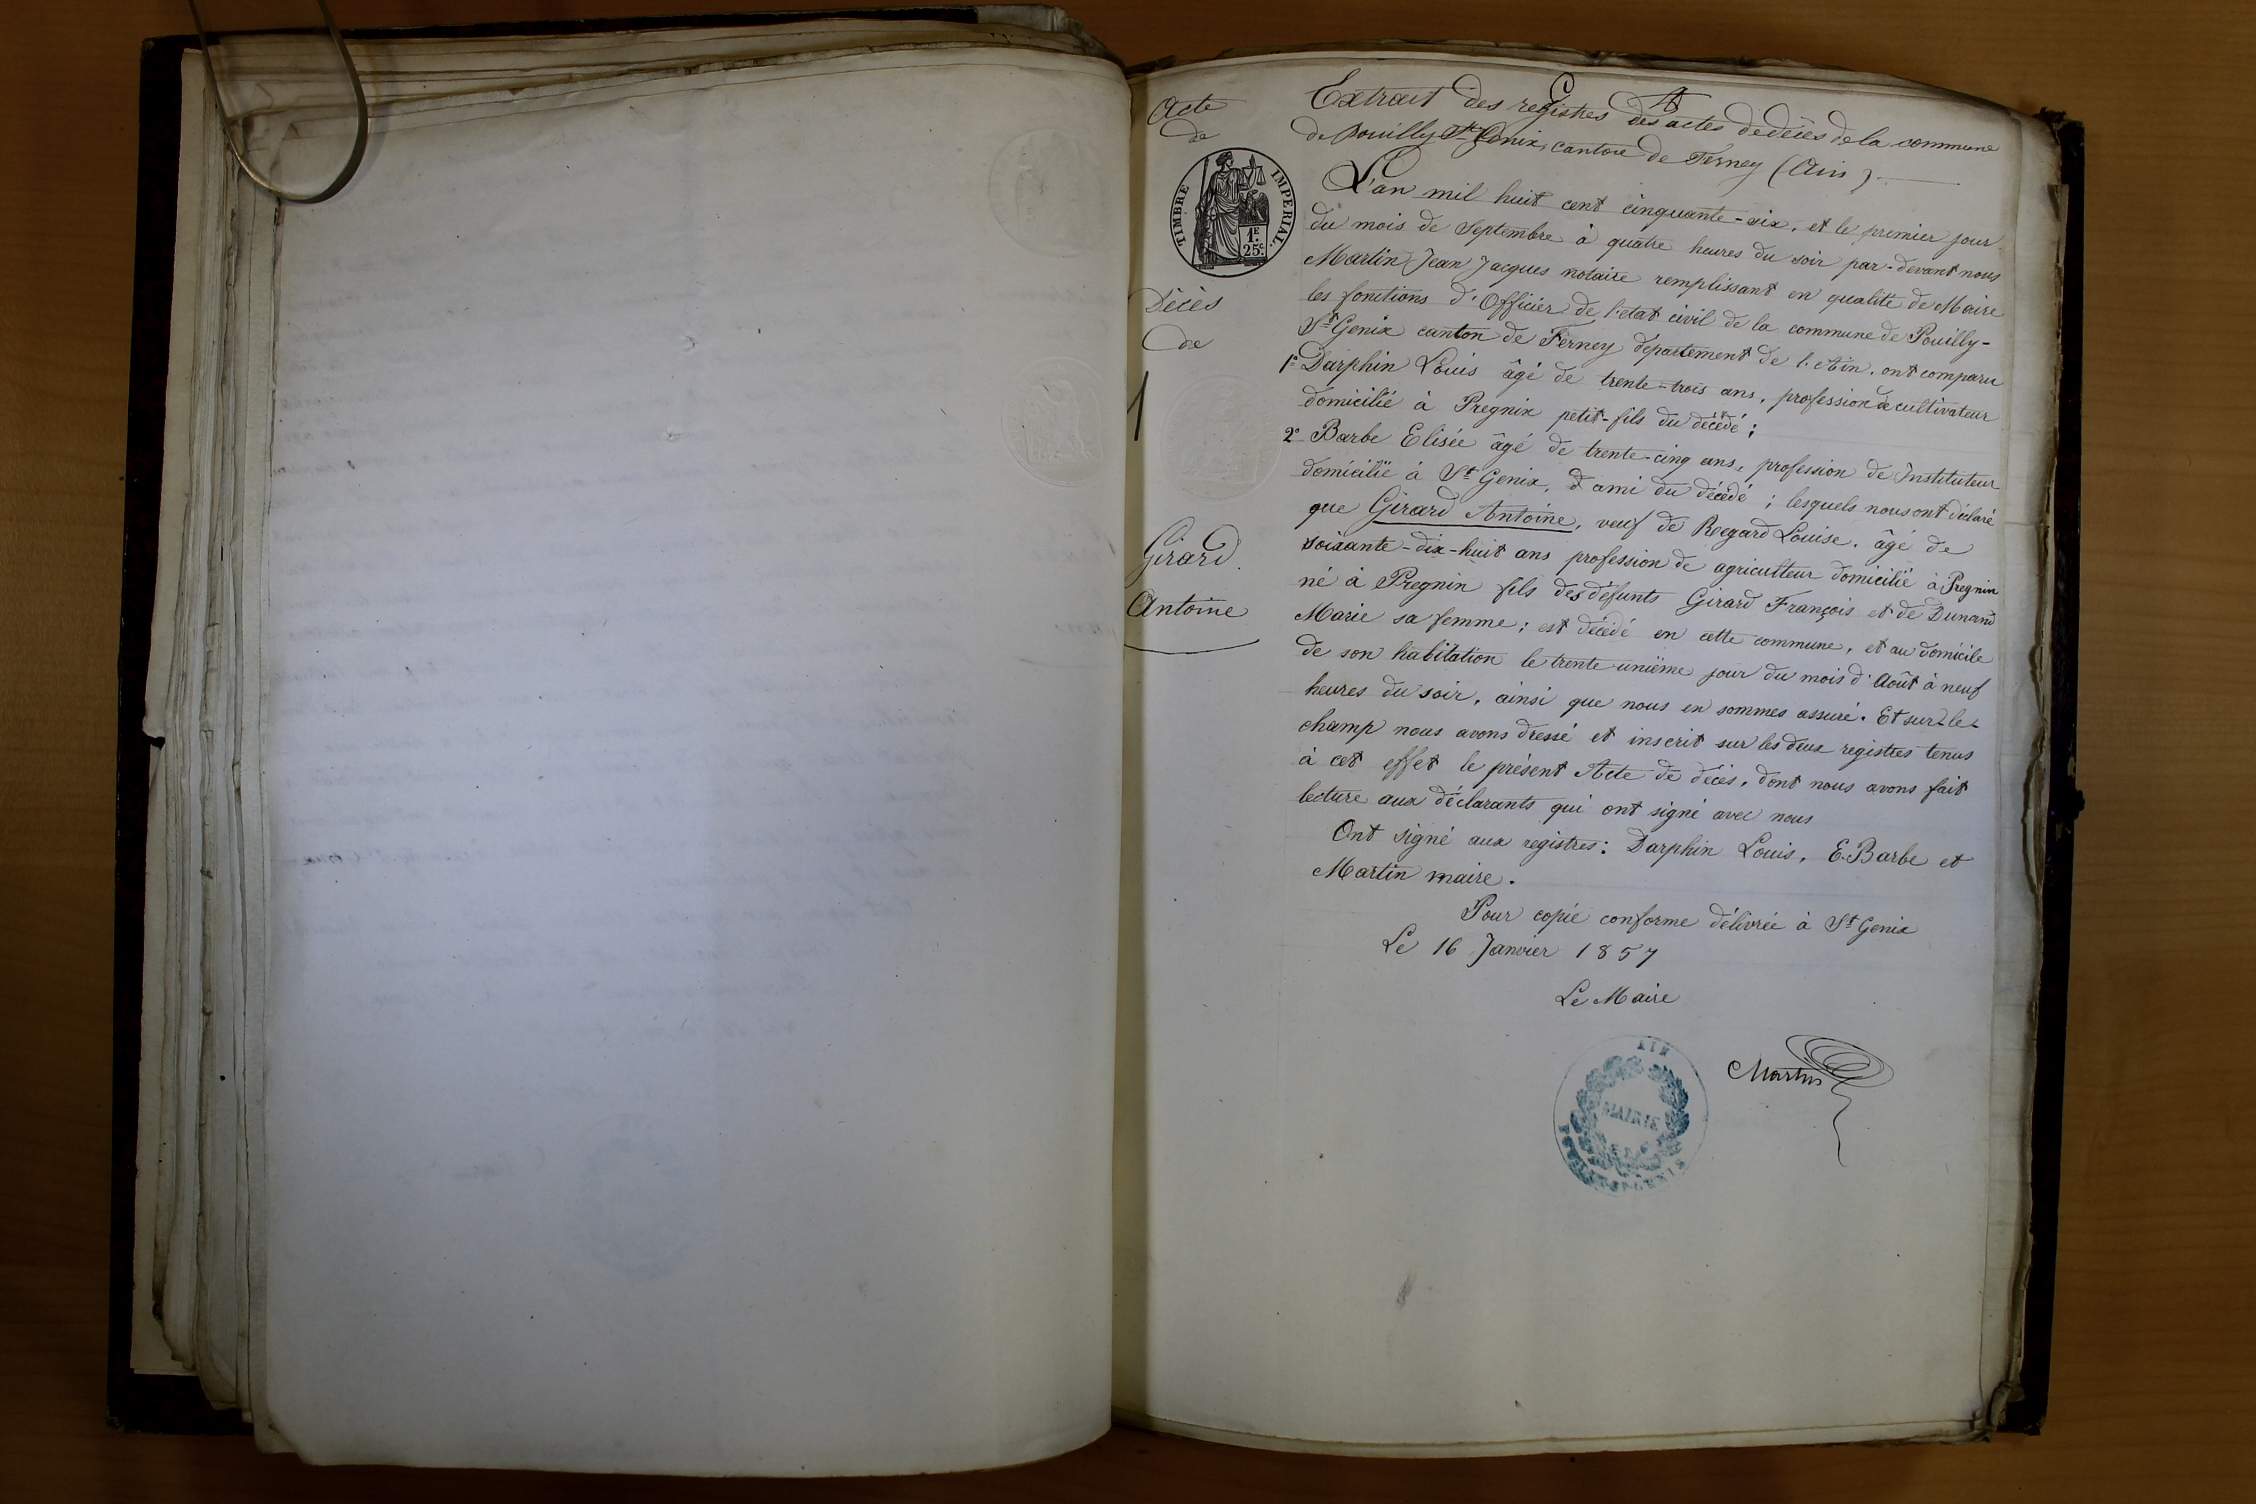 Acte
de
TIMBRE IMPERIAL.
1F.
25c.
Décès
de
1
Girard
Antoine
Extrait des registres des actes de décès de la commune
de Pouilly St Genix, canton de Ferney (Ain)
L'an mil huit cent cinquante-six, et le premier jour
du mois de Septembre à quatre heures du soir par-devant nous
Martin Jean Jacques notaire remplissant en qualité de Maire
les fonctions d'Officier de l'etat civil de la commune de Pouilly-
St Genix canton de Ferney département de l'Ain. ont comparu
1° Darphin Louis âgé de trente-trois ans, profession de cultivateur
domicilié à Pregnin petit-fils du décédé;
2° Barbe Elisée âgé de trente-cinq ans, profession de Instituteur
domicilié à St Genix, d ami du décédé; lesquels nous ont déclaré
que Girard Antoine, veuf de Regard Louise. âgé de
soixante-dix-huit ans profession de agriculteur domicilié à Pregnin
né à Pregnin fils des défunts Girard François et de Dunand
Marie sa femme; est décédé en cette commune, et au domicile
de son habitation le trente unième jour du mois d'Août à neuf
heures du soir, ainsi que nous en sommes assuré. Et sur-le-
champ nous avons dressé et inscrit sur les deux registres tenus
à cet effet le présent Acte de décès, dont nous avons fait
lecture aux déclarants qui ont signé avec nous
Ont signé aux registres: Darphin Louis, E. Barbe et
Martin maire.
Pour copie conforme délivrée à St Genix
Le 16 Janvier 1857
Le Maire
Martin
AIN
MAIRIE